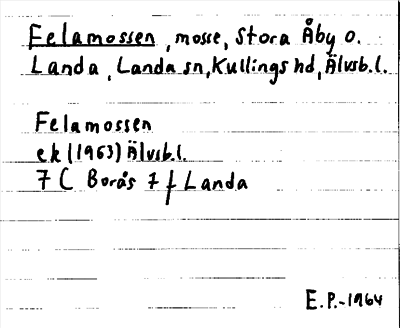 Felamossen, mosse, Stora Åby o.
Landa, Landa sn, Kullings hd, Älvsb.l.
Felamossen
ek (1963) Älvsb.l.
7 C Borås 7 f Landa
E.P.-1964